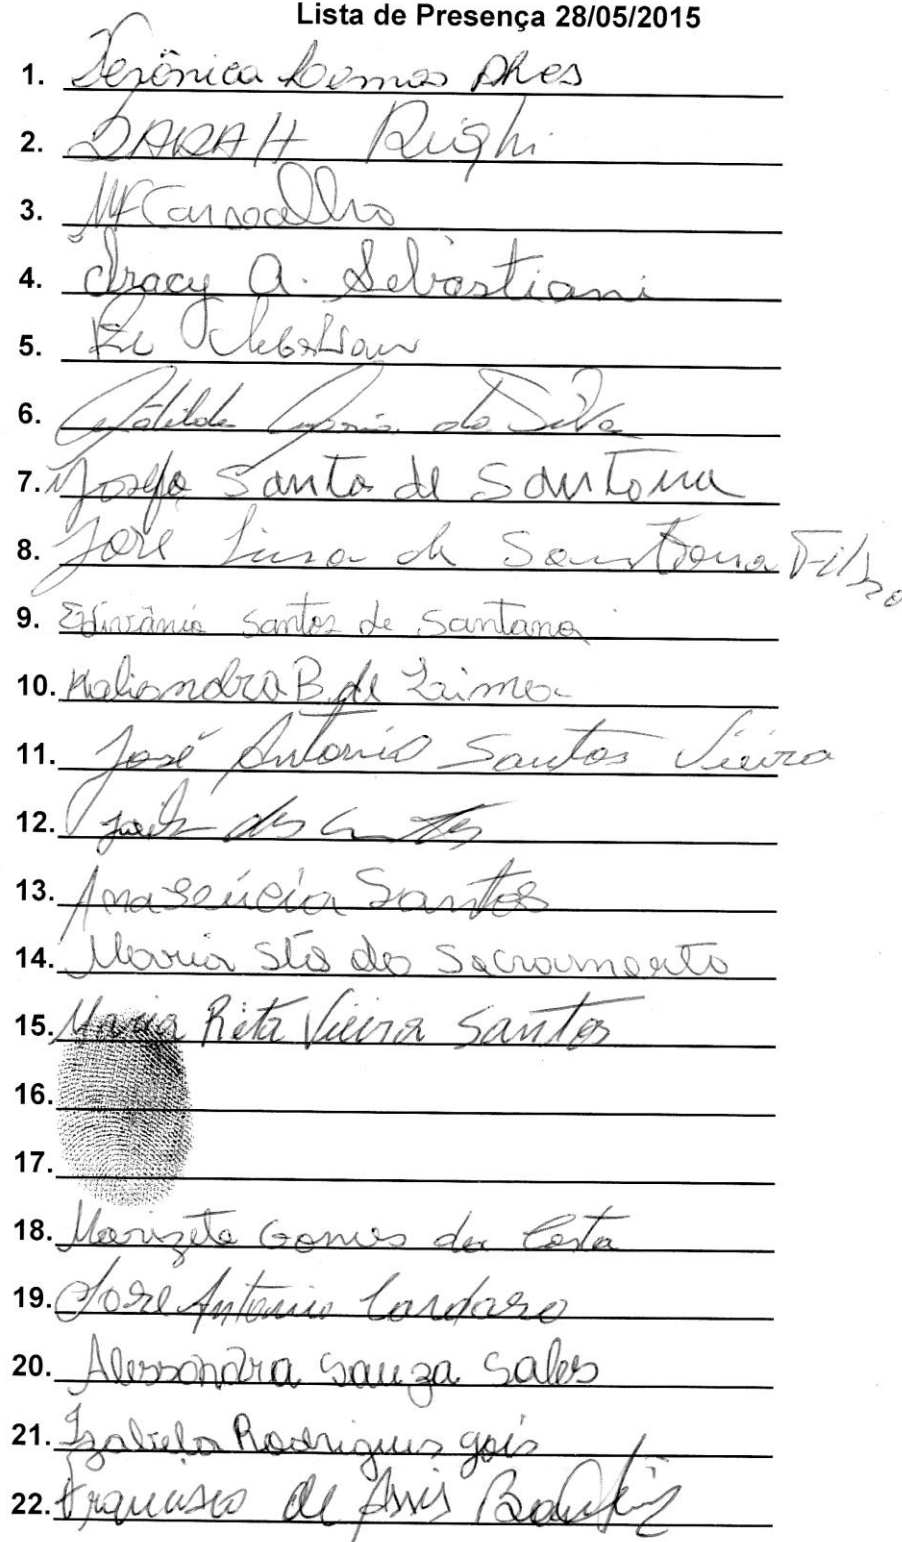 Lista de Presença 28/05/2015
1. Verônica Lemos Alves
2. SARAH Righi
3. MCarvalho
4. Iracy A. Sebastiani
5.
6. da Silva
7. Josefa Santos de Santana
8. José Lima de Santana Filho
9. Edivânia Santos de Santana
10. B. de Lima
11. José Antonio Santos Vieira
12. dos Santos
13. Ana Lúcia Santos
14. Maria Stos do Sacramento
15. Maria Rita Vieira Santos
16.
17.
18. Marizete Gomes da Costa
19. Jose Antonio Cardoso
20. Alessandra Souza Sales
21. Izabela Rodrigues gois
22. Francisco de Assis